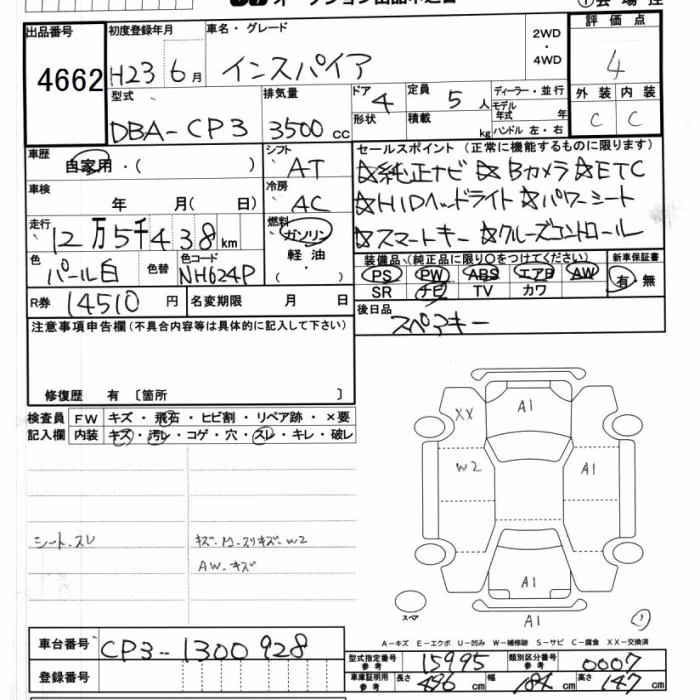 出品番号 初度登録年月 車名・グレード 2WD・4WD 評価点
4662 H23 6月 インスパイア 4
型式 排気量 ドア 4 定員 5人 ディーラー・並行 外装 内装
DBA-CP3 3500cc 形状 積載 kg モデル年式 年 ハンドル 左・右 C C
車歴 シフト セールスポイント (正常に機能するものに限ります)
自家用・( ) AT ☆純正ナビ ☆Bカメラ ☆ETC
車検 冷房 ☆HIDヘッドライト ☆パワーシート
年 月( 日) AC ☆スマートキー ☆クルーズコントロール
走行 燃料
12万5千438km ガソリン 装備品 (純正品に限り〇をつけてください) 新車保証書
色 色替 色コード 軽油 PS PW ABS エアB AW 有・無
パール白 NH624P ・( ) SR ナビ TV カワ
R券 14510円 名変期限 月 日 後日品
スペアキー
注意事項申告欄(不具合内容等は具体的に記入して下さい)
修復歴 有 〔箇所 〕
検査員 FW キズ・飛石・ヒビ割・リペア跡・×要
記入欄 内装 キズ・汚レ・コゲ・穴・スレ・キレ・破レ
XX A1
W2 A1
シート.スレ キズ.
AW.キズ
A1
スペア A1
A-キズ E-エクボ U-凹み W-補修跡 S-サビ C-腐食 XX-交換済
車台番号 CP3-1300928
型式指定番号 参考 15995 類別区分番号 参考 0007
登録番号 車庫証明用 参考 長さ 496cm 幅 184cm 高さ 147cm